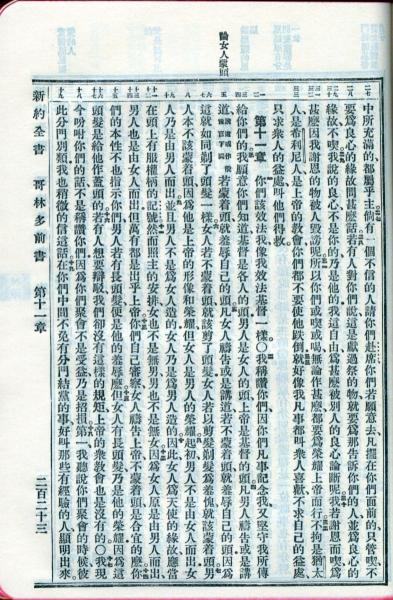 論女人蒙頭
中所充滿的都屬乎主倘有一個不信的人請你們赴席你們若願意去凡擺在你們面前的只管喫不
要爲良心的緣故問甚麼話若有人對你們說這是獻過祭的物就要爲那告訴你們的人並爲良心的
緣故不喫我說的良心不是你的乃是他的我這自由爲甚麼被別人的良心論斷呢我若謝恩而喫爲
甚麼因我謝恩的物被人毀謗呢所以你們或喫或喝無論作甚麼都要爲榮耀上帝而行不拘是猶太
人是希利尼人是上帝的教會你們都不要使他跌倒就好像我凡事都叫衆人喜歡不求自己的益處
只求衆人的益處叫他們得救
第十一章 你們該效法我像我效法基督一樣○我稱讚你們因你們凡事記念我又堅守我所傳
給你們的我願意你們知道基督是各人的頭男人是女人的頭上帝是基督的頭凡男人禱告或是講
道若蒙着頭就羞辱自己的頭凡女人禱告或是講道若不蒙着頭就羞辱自己的頭因爲
這就如同剃了頭髮一樣女人若不蒙着頭就該剪了頭髮女人若以剪髮剃髮爲羞愧就該蒙着頭男
人本不該蒙着頭因爲他是上帝的形像和榮耀但女人是男人的榮耀起初男人不是由女人而出女
人乃是由男人而出並且男人不是爲女人造的女人乃是爲男人造的因此女人爲天使的緣故應當
在頭上有服權柄的記號然而照主的安排女也不是無男男也不是無女因爲女人原是由男人而出
男人也是由女人而出但萬有都是出乎上帝你們自己審察女人禱告上帝不蒙着頭是合宜的麼你
們的本性不也指示你們男人若有長頭髮便是他的羞辱麼但女人有長頭髮乃是他的榮耀因爲這
頭髮是給他作蓋頭的若有人想要辯駁我們卻沒有這樣的規矩上帝的衆教會也是沒有的○我現
今吩咐你們的話不是稱讚你們因爲你們聚會不是受益乃是招損第一我聽說你們聚會的時候彼
此分門別類我也稍微的信這話在你們中間不免有分門結黨的事好叫那些有經驗的人顯明出來
新約全書 哥林多前書 第十一章 二百二十三